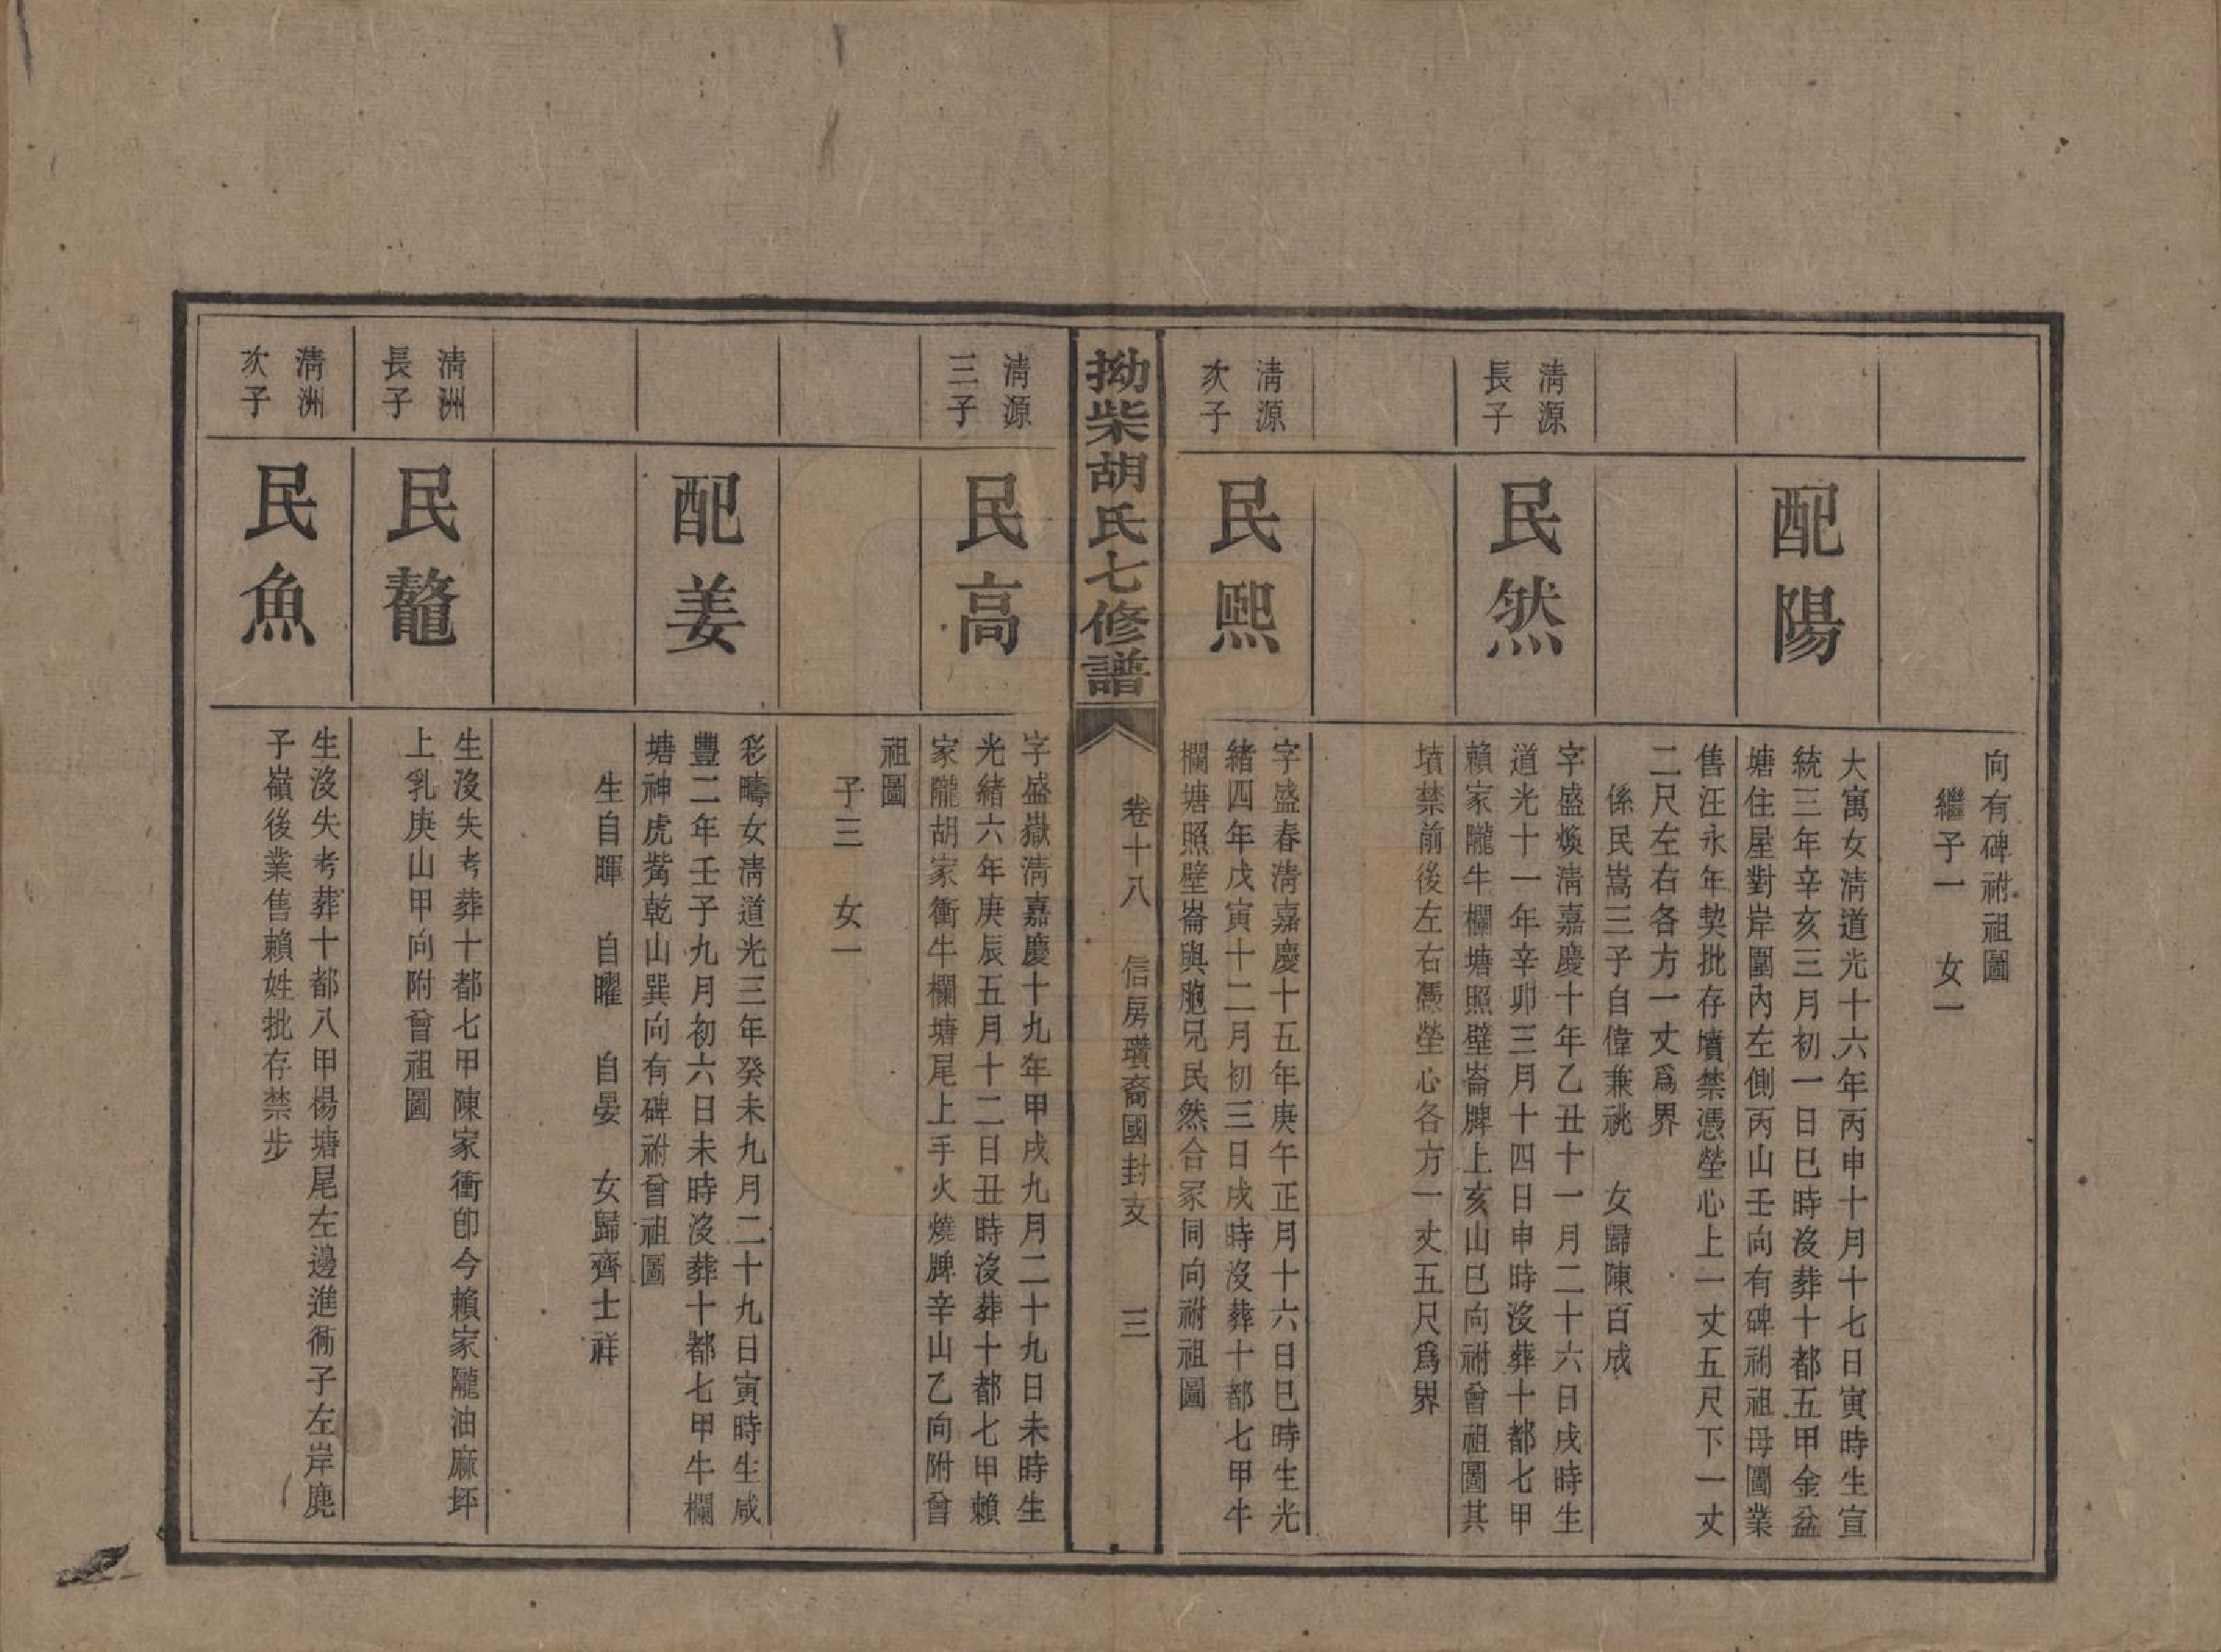 向有碑祔祖圖
繼子一　女一
配陽
大寓女淸道光十六年丙申十月十七日寅時生宣
統三年辛亥三月初一日巳時沒葬十都五甲金盆
塘住屋對岸圍內左側丙山壬向有碑祔祖母圖業
售汪永年契批存墳禁憑塋心上一丈五尺下一丈
二尺左右各方一丈爲界
係民嵩三子自偉兼祧　女歸陳百成
淸源
長子
民然
字盛煥淸嘉慶十年乙丑十一月二十六日戌時生
道光十一年辛卯三月十四日申時沒葬十都七甲
賴家隴牛欄塘照壁崙脾上亥山巳向祔曾祖圖其
墳禁前後左右憑塋心各方一丈五尺爲界
淸源
次子
民熙
字盛春淸嘉慶十五年庚午正月十六日巳時生光
緒四年戊寅十二月初三日戌時沒葬十都七甲牛
欄塘照壁崙與胞兄民然合冢同向祔祖圖
拗柴胡氏七修譜
卷十八　信房瓚裔國封支　三
淸源
三子
民高
字盛嶽淸嘉慶十九年甲戌九月二十九日未時生
光緒六年庚辰五月十二日丑時沒葬十都七甲賴
家隴胡家衝牛欄塘尾上手火燒脾辛山乙向附曾
祖圖
子三　女一
配姜
彩疇女淸道光三年癸未九月二十九日寅時生咸
豐二年壬子九月初六日未時沒葬十都七甲牛欄
塘神虎觜乾山巽向有碑祔曾祖圖
生自暉　自曜　自晏　女歸齊士祥
淸洲
長子
民鼇
生沒失考葬十都七甲陳家衝卽今賴家隴油麻坪
上乳庚山甲向附曾祖圖
淸洲
次子
民魚
生沒失考葬十都八甲楊塘尾左邊進衕子左岸麂
子嶺後業售賴姓批存禁步